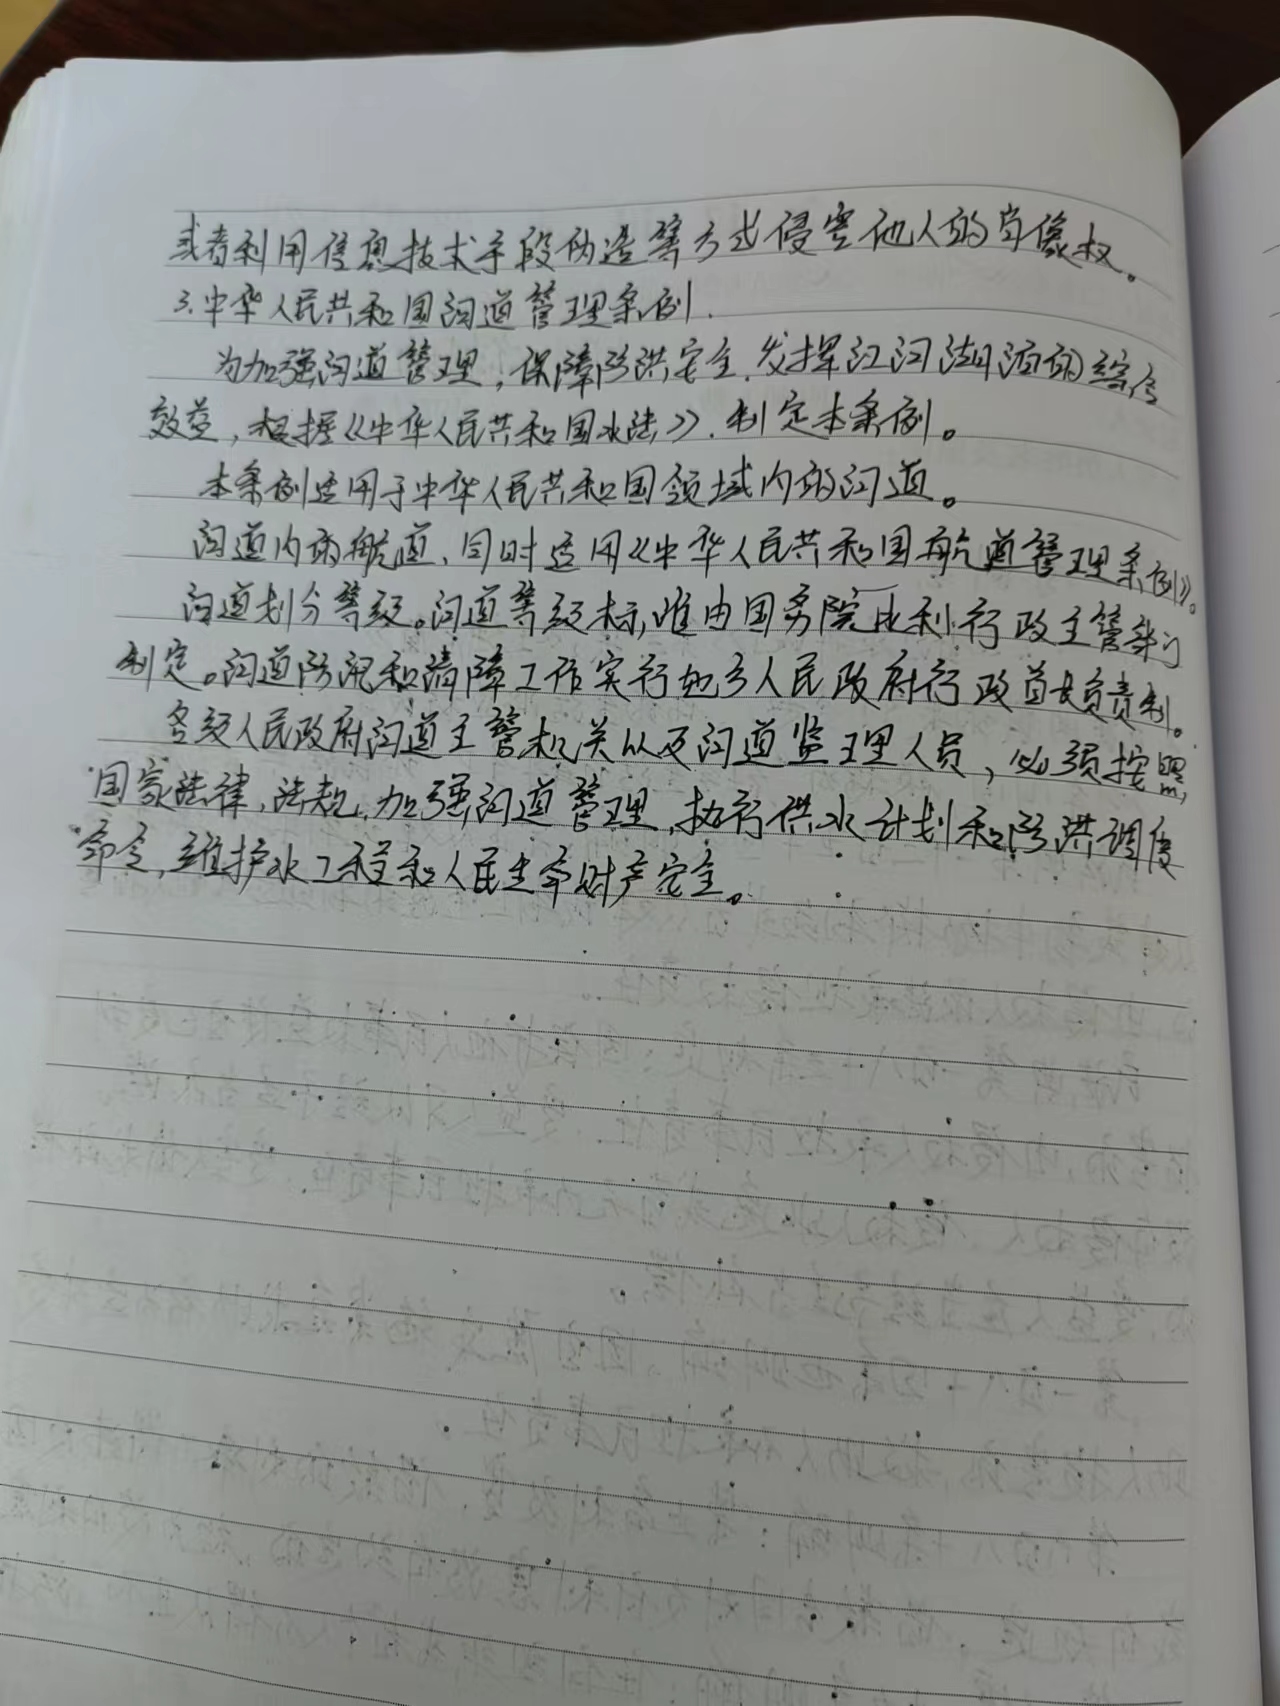 或者利用信息技术手段伪造等方式侵害他人的肖像权。
3.中华人民共和国河道管理条例.
为加强河道管理,保障防洪安全,发挥江河湖泊的综合
效益,根据《中华人民共和国水法》,制定本条例。
本条例适用于中华人民共和国领域内的河道。
河道内的航道,同时适用《中华人民共和国航道管理条例》。
河道划分等级。河道等级标准由国务院水利行政主管部门
制定。河道防汛和清障工作实行地方人民政府行政首长负责制。
各级人民政府河道主管机关以及河道监理人员,必须按照
国家法律,法规,加强河道管理,执行供水计划和防洪调度
命令,维护水工程和人民生命财产安全。